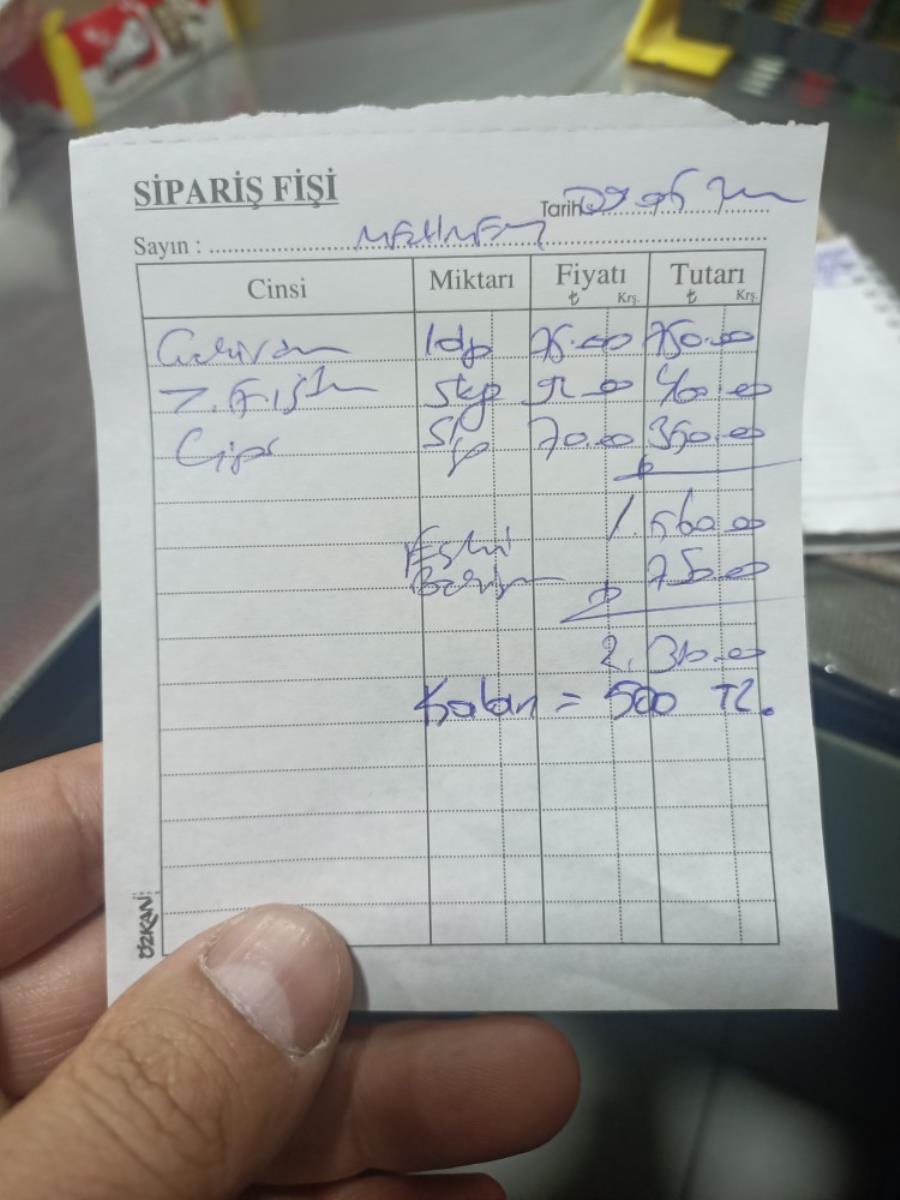 SİPARİŞ FİŞİ
Tarih
Sayın : MEHMET
Cinsi Miktarı Fiyatı Tutarı
₺ Krş. ₺ Krş.
75.00 750.00
T. 5kp 92.00 460.00
Cips 5 70.00 350.00
1.560.00
Eski 750.00
2.310.00
Kalan = 500 TL.
ÖZKAN